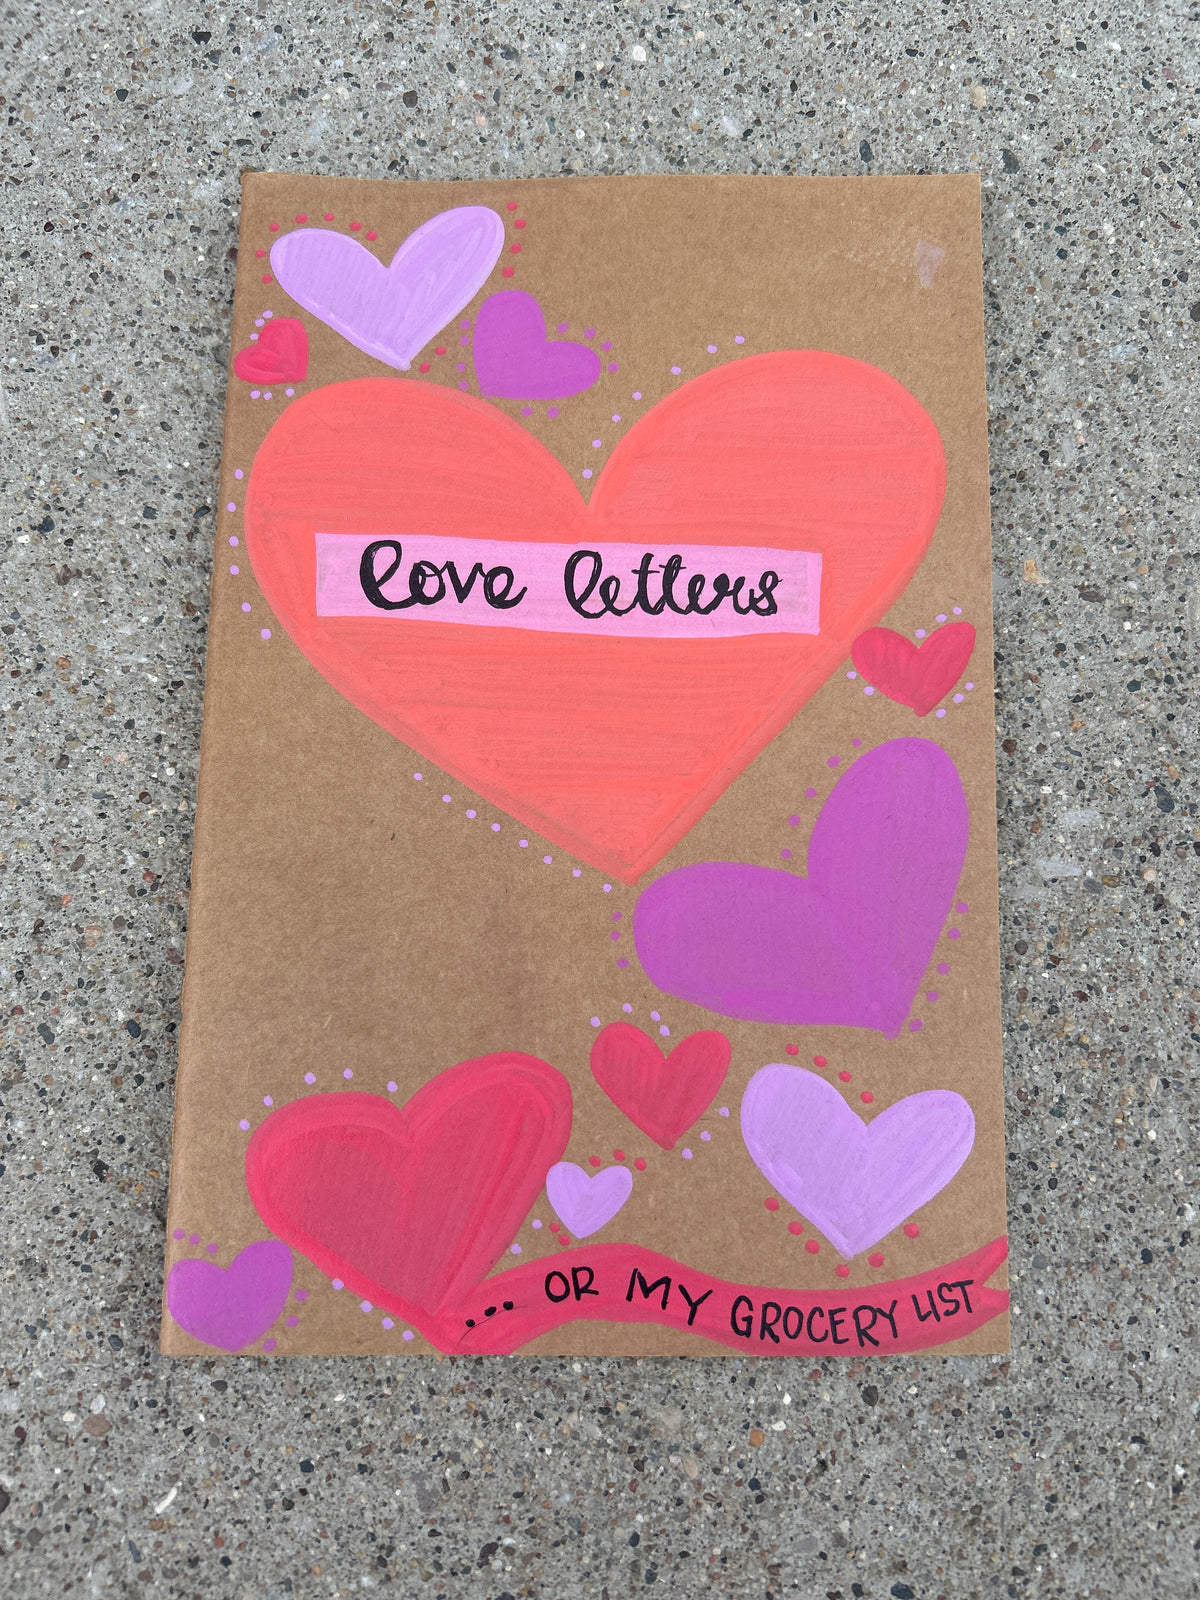 love letters
... OR MY GROCERY LIST